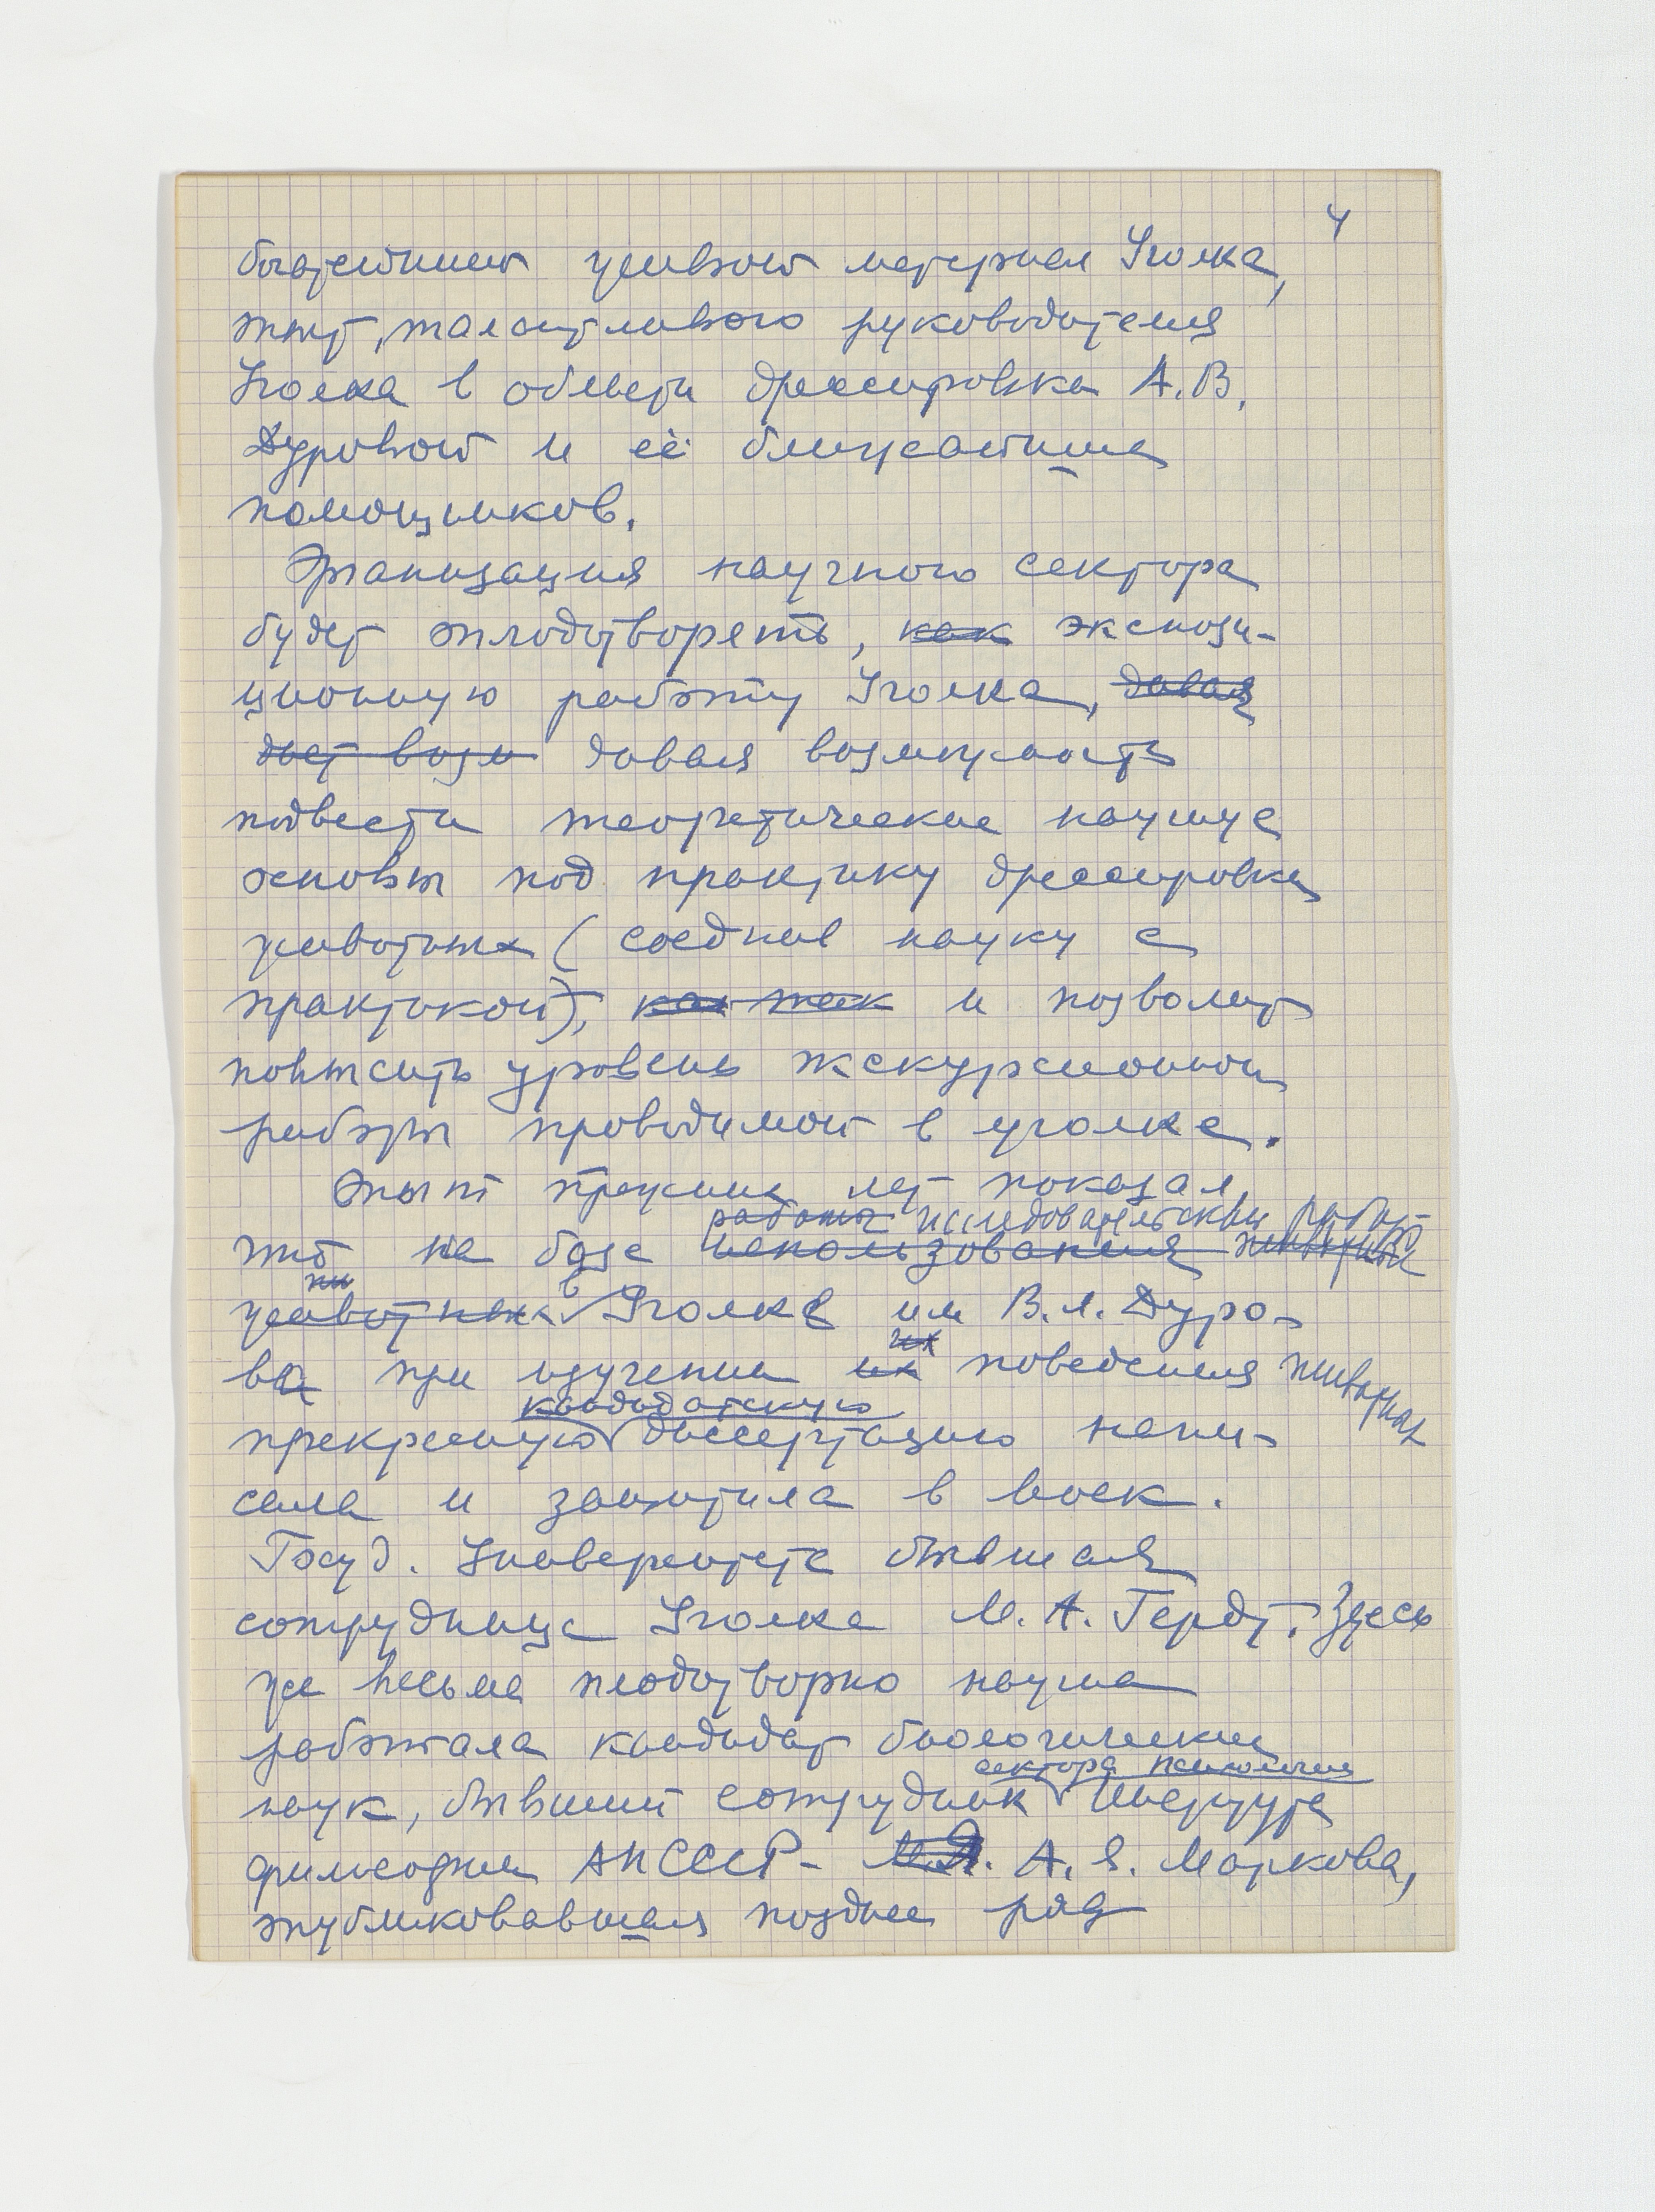 4
богатейший живой материал Уголка,
опыт, талантливого руководителя
Уголка в области дрессировки А. В.
Дуровой и её ближайших
помощников.
Организация научного сектора
будет оплодотворять, как экспози-
ционную работу Уголка, давая
даст возм давая возможность
подвести теоретические научные
основы под практику дрессировки
животных (соединив науку с
практикой), как так и позволит
повысить уровень экскурсионной
работы проводимой в уголке.
Опыт прежних лет показал,
работы исследовательских работ
что на базе использования
животных в Уголке им В. Л. Дуро-
ва при изучении их поведения животных
кандидатскую
прекрасную диссертацию напи-
сала и защитила в Моск.
Госуд. Университете бывшая
сотрудница Уголка М. А. Герд. Здесь
же весьма плодотворно научно
работала кандидат биологических
сектора психологии
наук, бывший сотрудник Института
философии АН СССР - А. Я. Маркова,
опубликовавшая позднее ряд